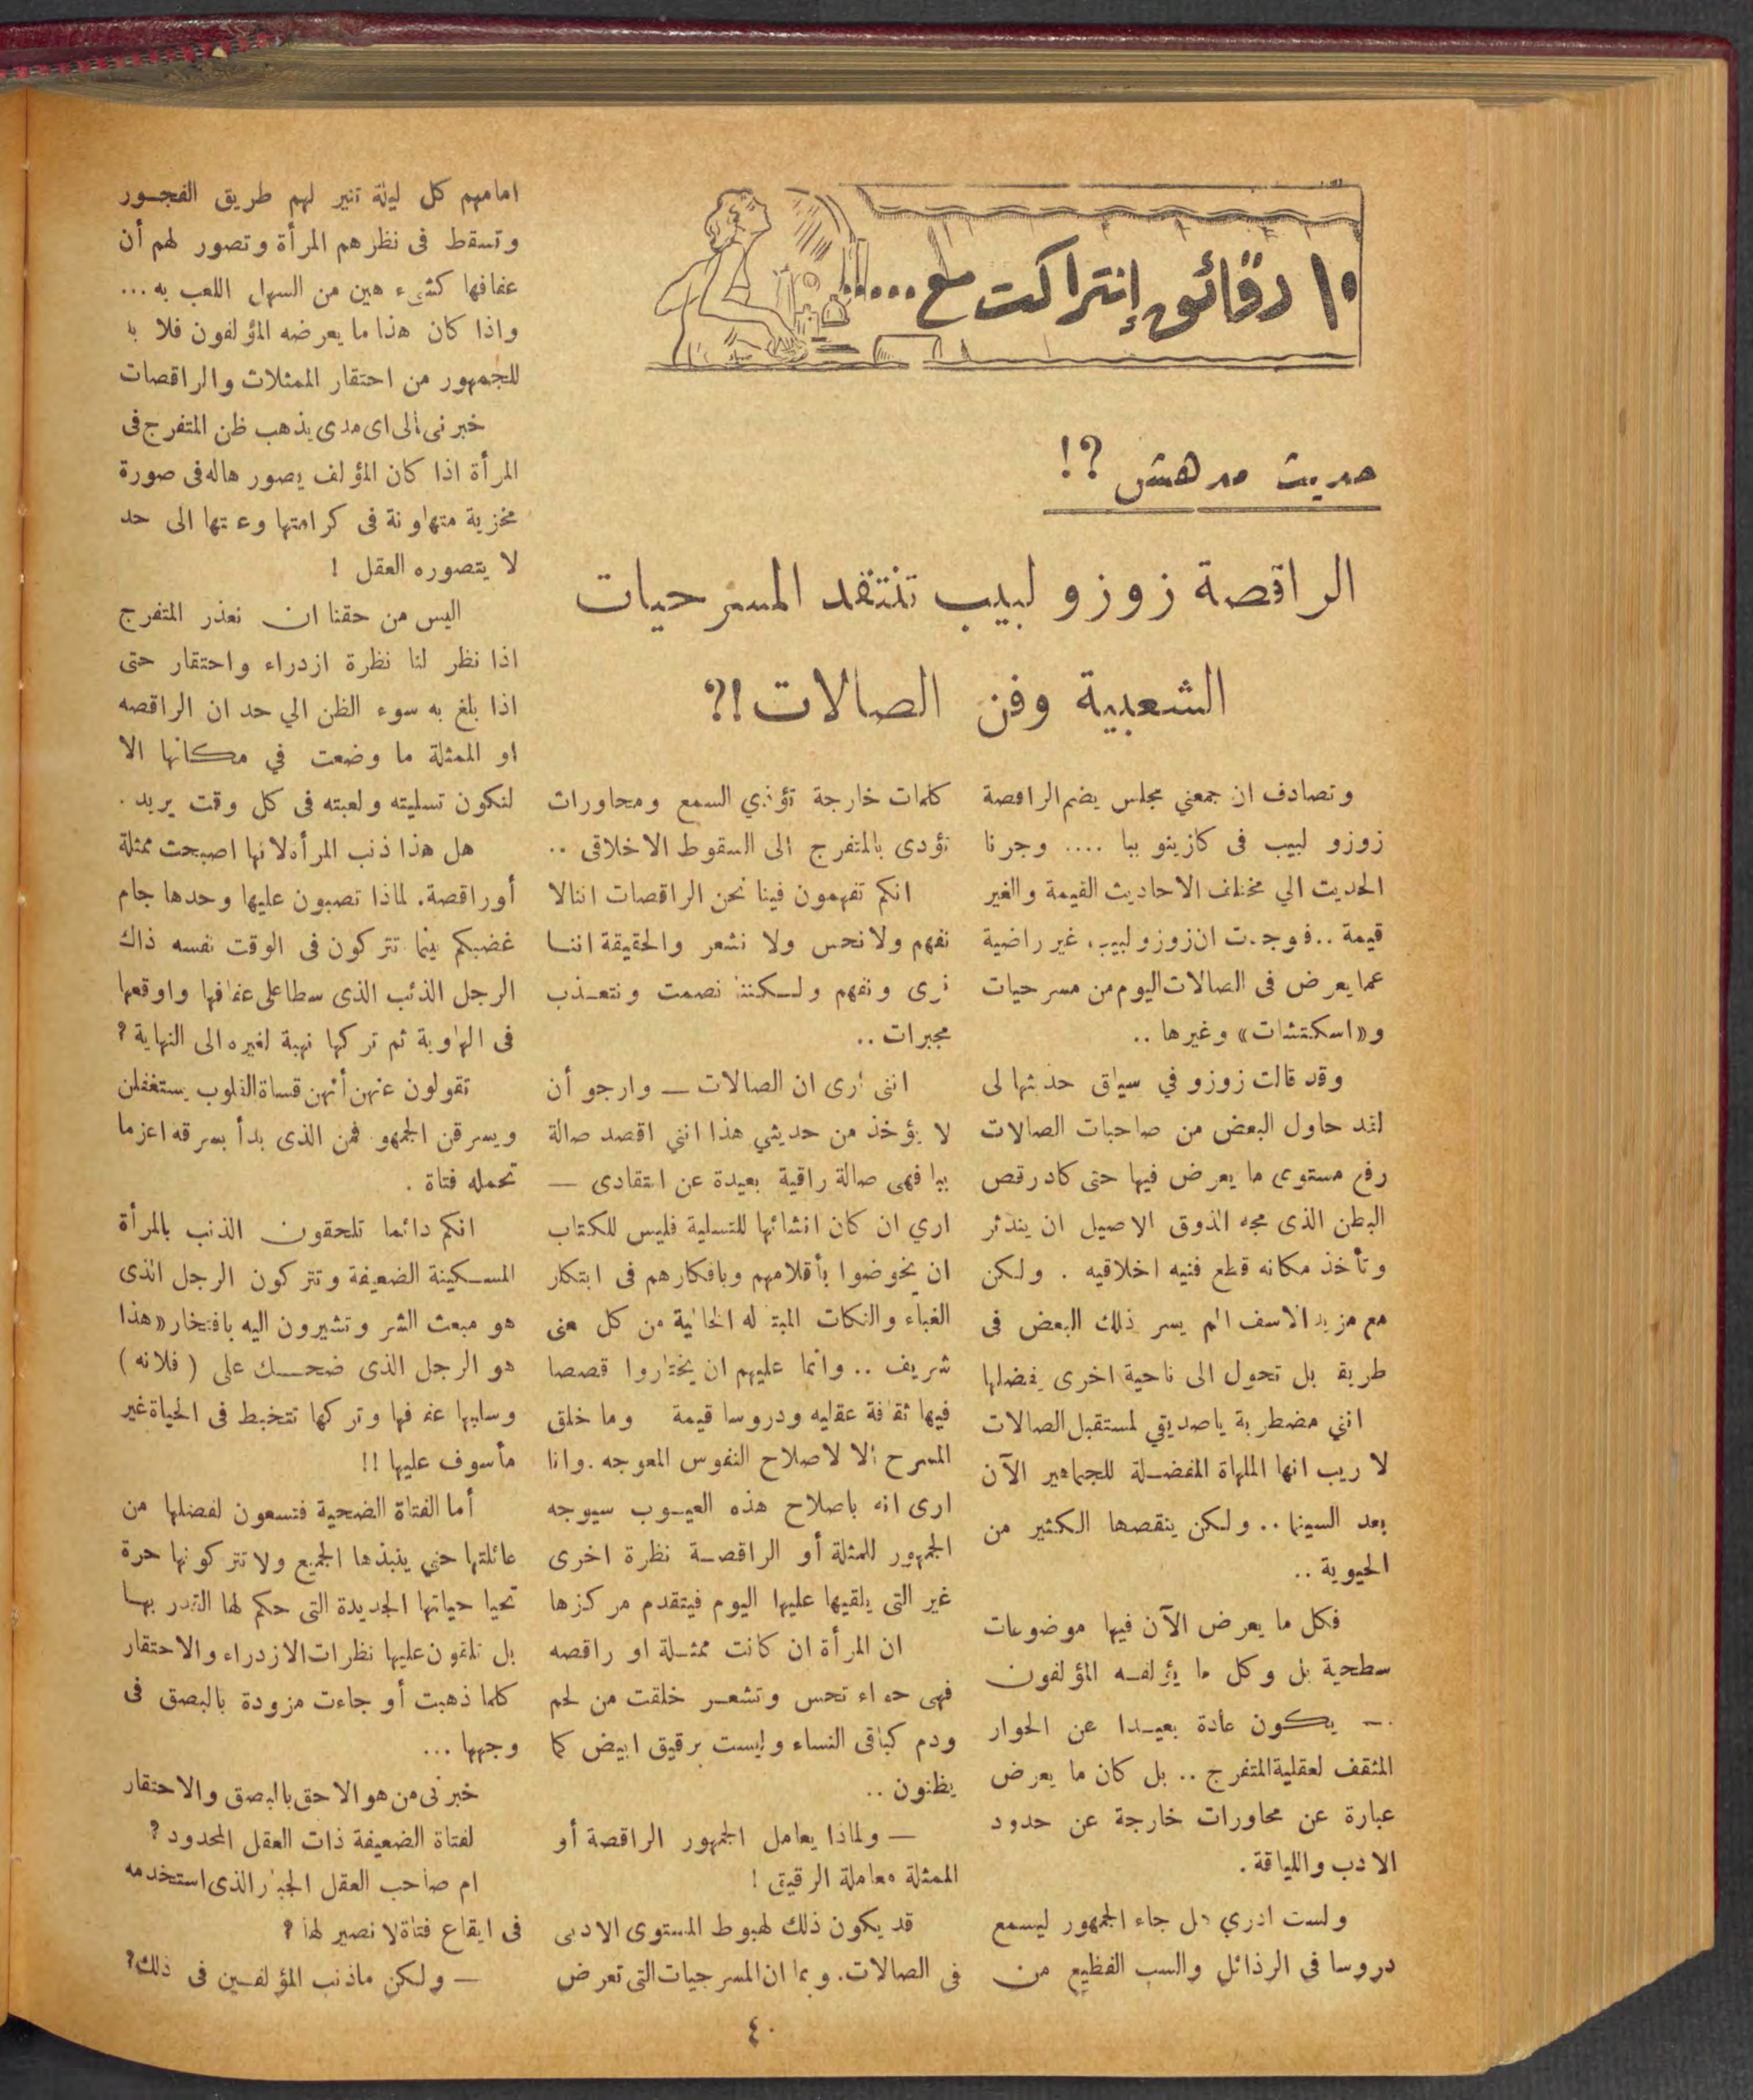 ١٠ دقائق إنتراكت مع .....
حديث مدهش ?!
الراقصة زوزو لبيب تنتقد المسرحيات
الشعبية وفن الصالات !?
وتصادف ان جمعني مجلس يضم الراقصة
زوزو لبيب فى كازينو ببا .... وجرنا
الحديث الي مختلف الاحاديث القيمة والغير
قيمة .. فوجدت ان زوزو لبيب، غير راضية
عما يعرض فى الصالات اليوم من مسرحيات
و«اسكتشات» وغيرها ..
وقد قالت زوزو في سياق حديثها لى
لقد حاول البعض من صاحبات الصالات
رفع مستوى ما يعرض فيها حتى كاد رقص
البطن الذى مجه الذوق الاصيل ان يندثر
وتأخذ مكانه قطع فنيه اخلاقيه . ولكن
مع مزيد الاسف لم يسر ذلك البعض فى
طريقه بل تحول الى ناحية اخرى يفضلها
انني مضطربة ياصديقي لمستقبل الصالات
لا ريب انها الملهاة المفضلة للجماهير الآن
بعد السينما .. ولكن ينقصها الكثير من
الحيوية ..
فكل ما يعرض الآن فيها موضوعات
سطحية بل وكل ما يؤلفه المؤلفون
— يكون عادة بعيدا عن الحوار
المثقف لعقلية المتفرج .. بل كان ما يعرض
عبارة عن محاورات خارجة عن حدود
الادب واللياقة .
ولست ادري هل جاء الجمهور ليسمع
دروسا في الرذائل والسب الفظيع من
كلمات خارجة تؤذي السمع ومحاورات
تؤدى بالمتفرج الى السقوط الاخلاقى ..
انكم تفهمون فينا نحن الراقصات اننالا
نفهم ولانحس ولا نشعر والحقيقة اننا
نرى ونفهم ولكننا نصمت ونتعذب
مجبرات ..
انى أرى ان الصالات — وارجو أن
لا يؤخذ من حديثي هذا انني اقصد صالة
ببا فهى صالة راقية بعيدة عن انتقادى —
اري ان كان انشائها للتسلية فليس للكتاب
ان يخوضوا بأقلامهم وبافكارهم فى ابتكار
الغباء والنكات المبتذله الخالية من كل معنى
شريف .. وانما عليهم ان يختاروا قصصا
فيها ثقافة عقليه ودروسا قيمة وما خلق
المسرح الا لاصلاح النفوس المعوجه . وانا
ارى انه باصلاح هذه العيوب سيوجه
الجمهور للمثلة أو الراقصة نظرة اخرى
غير التى يلقيها عليها اليوم فيتقدم مركزها
ان المرأة ان كانت ممثلة او راقصه
فهى حواء تحس وتشعر خلقت من لحم
ودم كباقى النساء وليست برقيق ابيض كما
يظنون ..
— ولماذا يعامل الجمهور الراقصة أو
الممثلة معاملة الرقيق !
قد يكون ذلك لهبوط المستوى الادبى
فى الصالات. وبما ان المسرحيات التى تعرض
امامهم كل ليلة تنير لهم طريق الفجور
وتسقط فى نظرهم المرأة وتصور لهم أن
عفافها كشىء هين من السهل اللعب به ...
واذا كان هذا ما يعرضه المؤلفون فلا
للجمهور من احتقار الممثلات والراقصات
خبرنى الى اى مدى يذهب ظن المتفرج فى
المرأة اذا كان المؤلف يصور هاله فى صورة
مخزية متهاونة فى كرامتها وعفتها الى حد
لا يتصوره العقل !
اليس من حقنا ان نعذر المتفرج
اذا نظر لنا نظرة ازدراء واحتقار حتى
اذا بلغ به سوء الظن الي حد ان الراقصه
او الممثلة ما وضعت في مكانها الا
لتكون تسليته ولعبته فى كل وقت يريد .
هل هذا ذنب المرأة لانها اصبحت ممثلة
أو راقصة. لماذا تصبون عليها وحدها جام
غضبكم بينما تتركون فى الوقت نفسه ذاك
الرجل الذئب الذى سطا على عفافها واوقعها
فى الهاوية ثم تركها نهبة لغيره الى النهاية ?
تقولون عنهن أنهن قساة القلوب يستغفلن
ويسرقن الجمهور فمن الذى بدأ بسرقة اعز ما
تحمله فتاة .
انكم دائما تلحقون الذنب بالمرأة
المسكينة الضعيفة وتتركون الرجل الذى
هو مبعث الشر وتشيرون اليه بافتخار «هذا
هو الرجل الذى ضحك على ( فلانه )
وسلبها عفافها وتركها تتخبط فى الحياة غير
مأسوف عليها !!
أما الفتاة الضحية فتسعون لفضلها من
عائلتها حتي ينبذها الجميع ولا تتركونها حرة
تحيا حياتها الجديدة التى حكم لها القدر بها
بل تلقون عليها نظرات الازدراء والاحتقار
كلما ذهبت أو جاءت مزودة بالبصق فى
وجهها ...
خبرنى من هو الاحق بالبصق والاحتقار
لفتاة الضعيفة ذات العقل المحدود ?
ام صاحب العقل الجبار الذى استخدمه
فى ايقاع فتاة لا نصير لها ?
— ولكن ماذنب المؤلفين فى ذلك ?
٤٠